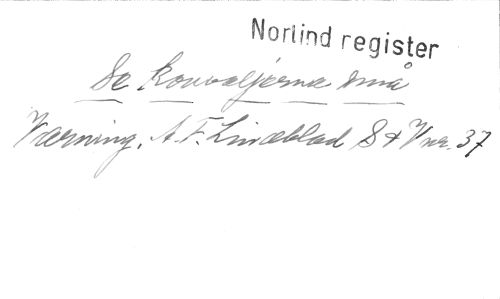 Norlind register
De konvaljerna små
Värning. A. F. Lindblad S & V nr. 37